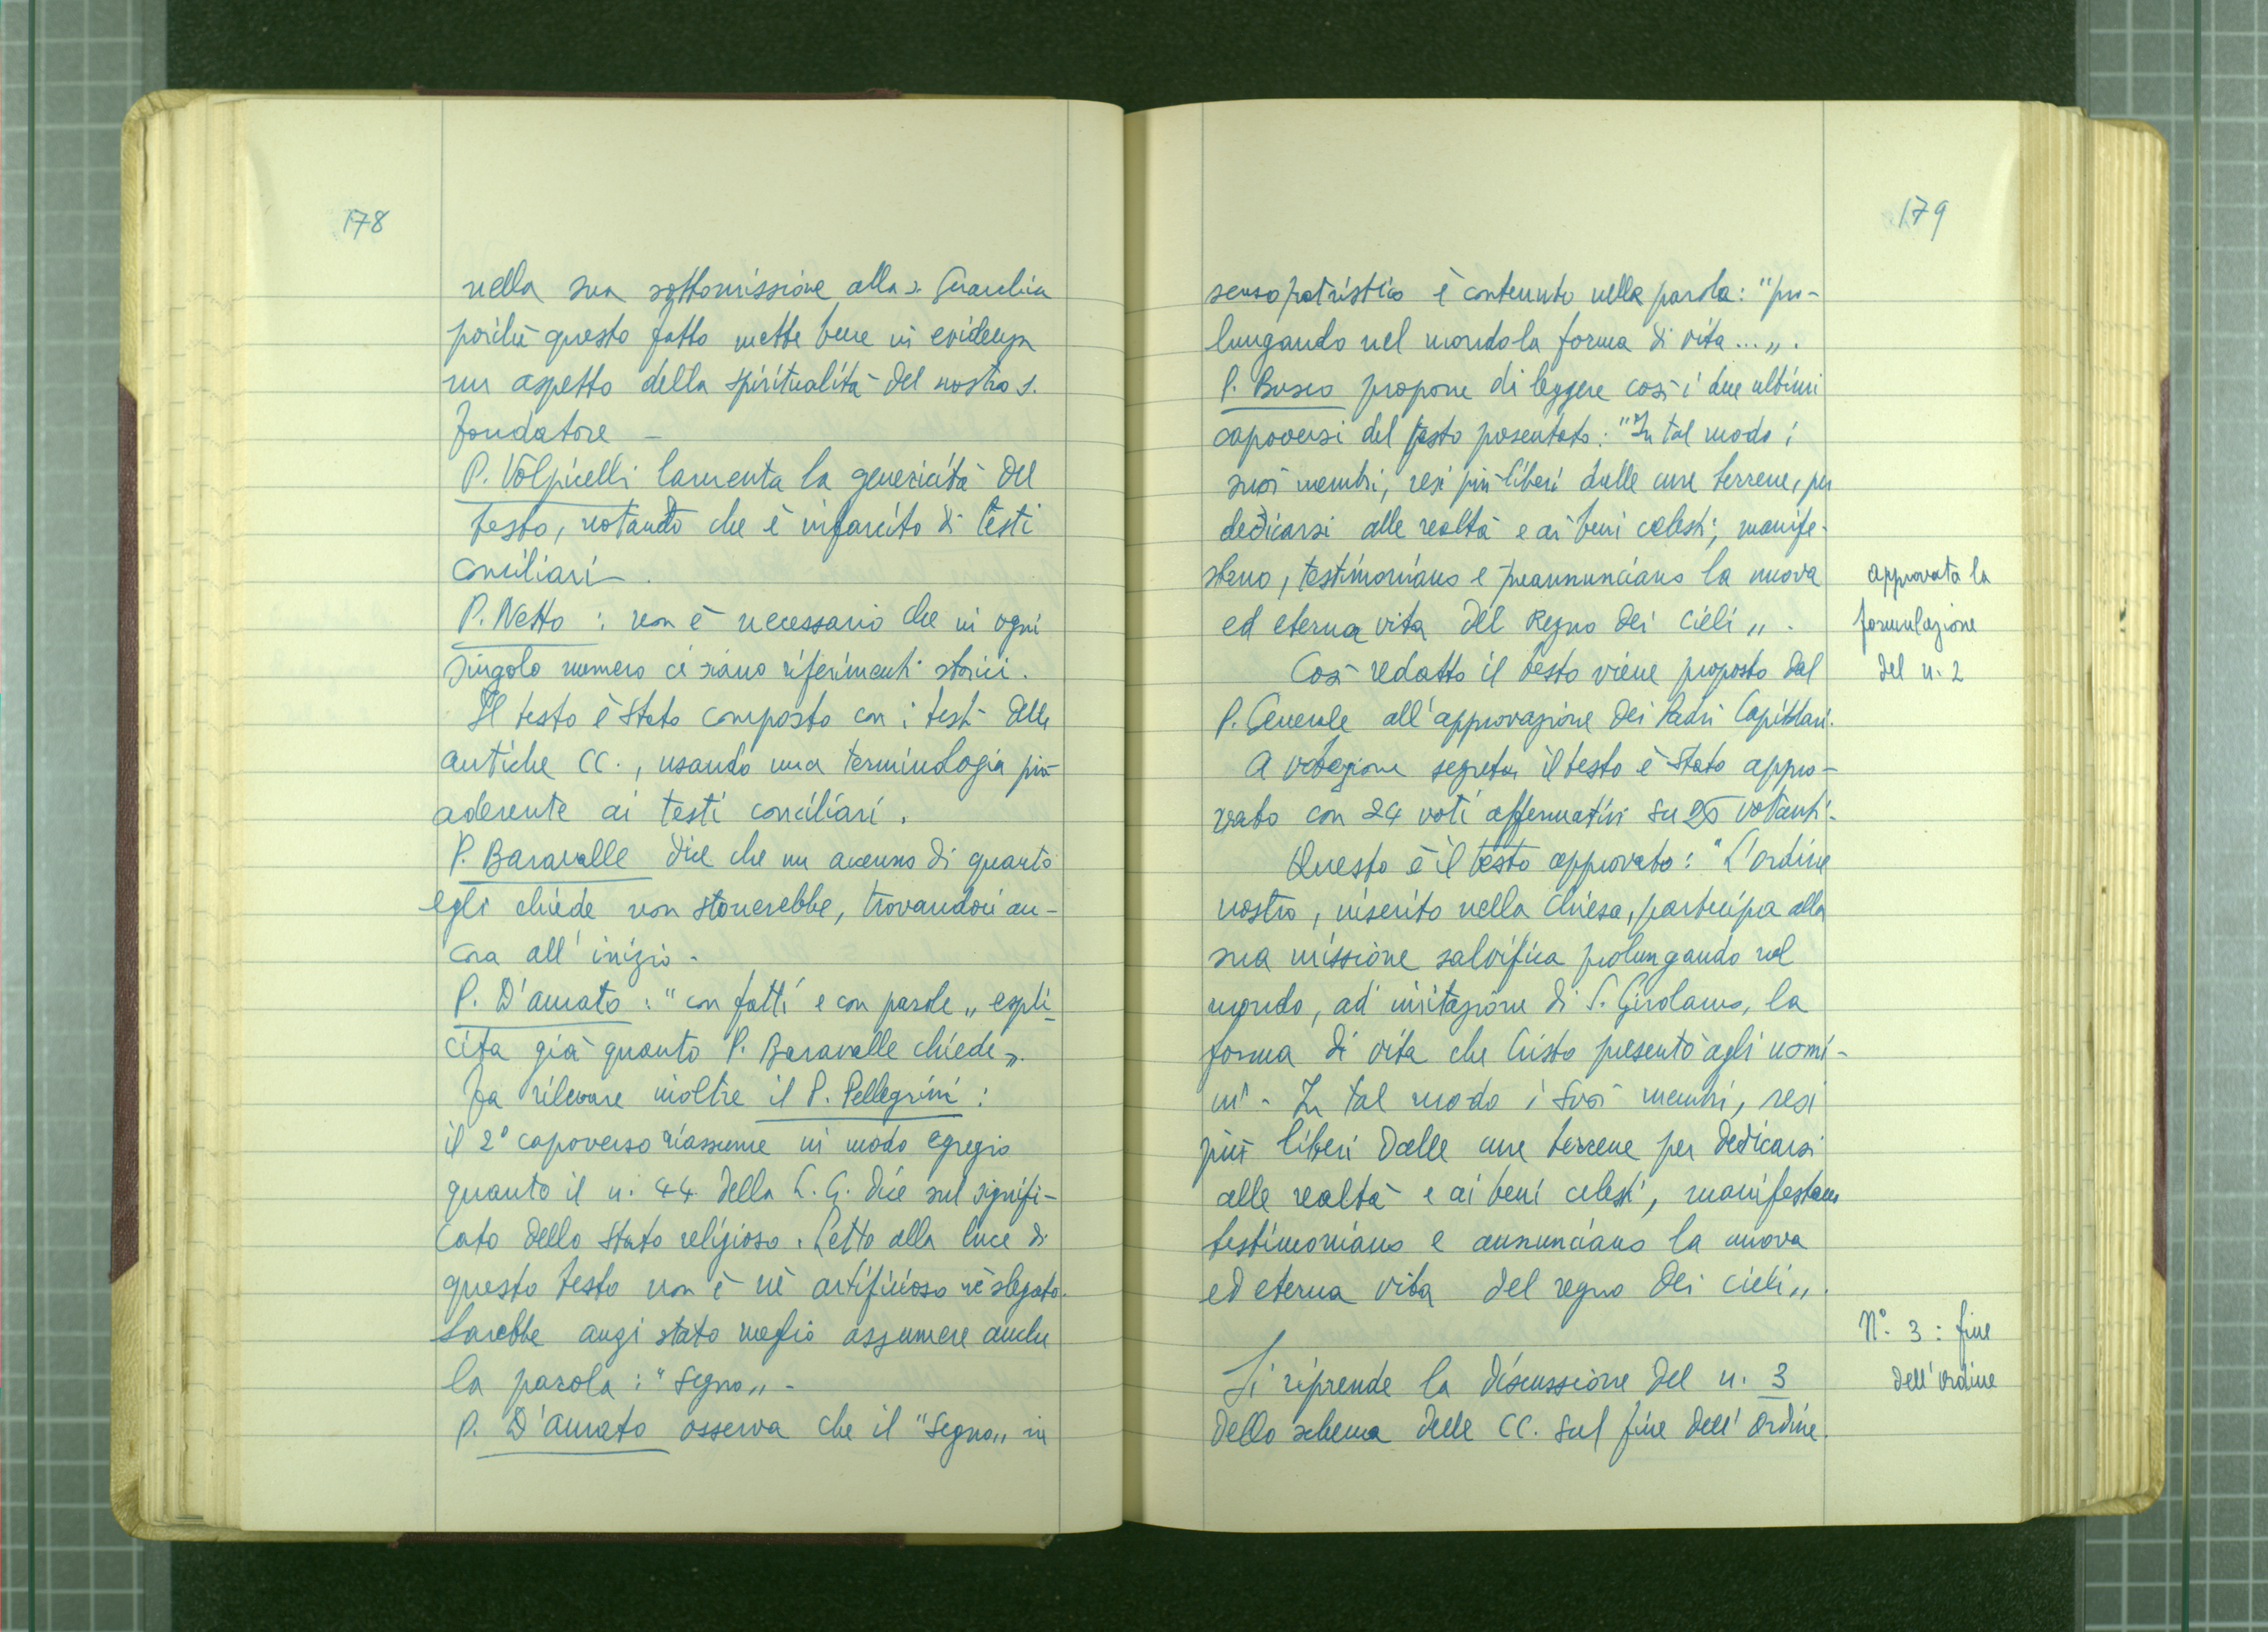 178
nella sua sottomissione alla s. Gerarchia
poiché questo fatto mette bene in evidenza
un aspetto della spiritualità del nostro s.
fondatore –
P. Volpicelli lamenta la genericità del
testo, notando che è infarcito di testi
conciliari –
P. Netto : non è necessario che in ogni
singolo numero ci siano riferimenti storici.
Il testo è stato composto con i testi delle
antiche CC., usando una terminologia più
aderente ai testi conciliari.
P. Baravalle dice che un accenno di quanto
egli chiede non stonerebbe, trovandoci an-
cora all'inizio.
P. D'Amato : "con fatti e con parole„ espli-
cita già quanto P. Baravalle chiede„.
Fa rilevare inoltre il P. Pellegrini :
il 2° capoverso riassume in modo egregio
quanto il n. 44 della L. G. dice sul signifi-
cato dello stato religioso. Letto alla luce di
questo testo non è nè artificioso nè slegato.
Sarebbe anzi stato meglio assumere anche
la parola : "segno„ -
P. D'Amato osserva che il "segno„ in
179
senso patristico è contenuto nella parola: "pro-
lungando nel mondo la forma di vita...„.
P. Busco propone di leggere così i due ultimi
capoversi del testo presentato: "In tal modo i
suoi membri, resi più liberi dalle cure terrene, per
dedicarsi alle realtà e ai beni celesti, manife-
stano, testimoniano e preannunciano la nuova
ed eterna vita del Regno dei Cieli„.
approvata la
formulazione
del n. 2
Così redatto il testo viene proposto dal
P. Generale all'approvazione dei Padri Capitolari.
A votazione segreta il testo è stato appro-
vato con 24 voti affermativi su 25 votanti.
Questo è il testo approvato: "L'ordine
nostro, inserito nella Chiesa, partecipa alla
sua missione salvifica prolungando nel
mondo, ad imitazione di S. Girolamo, la
forma di vita che Cristo presentò agli uomi-
ni. In tal modo i suoi membri, resi
più liberi dalle cure terrene per dedicarsi
alle realtà e ai beni celesti, manifestano
testimoniano e annunciano la nuova
ed eterna vita del regno dei cieli„.
N°. 3 : fine
dell'Ordine
Si riprende la discussione del n. 3
dello schema delle CC. sul fine dell'Ordine.